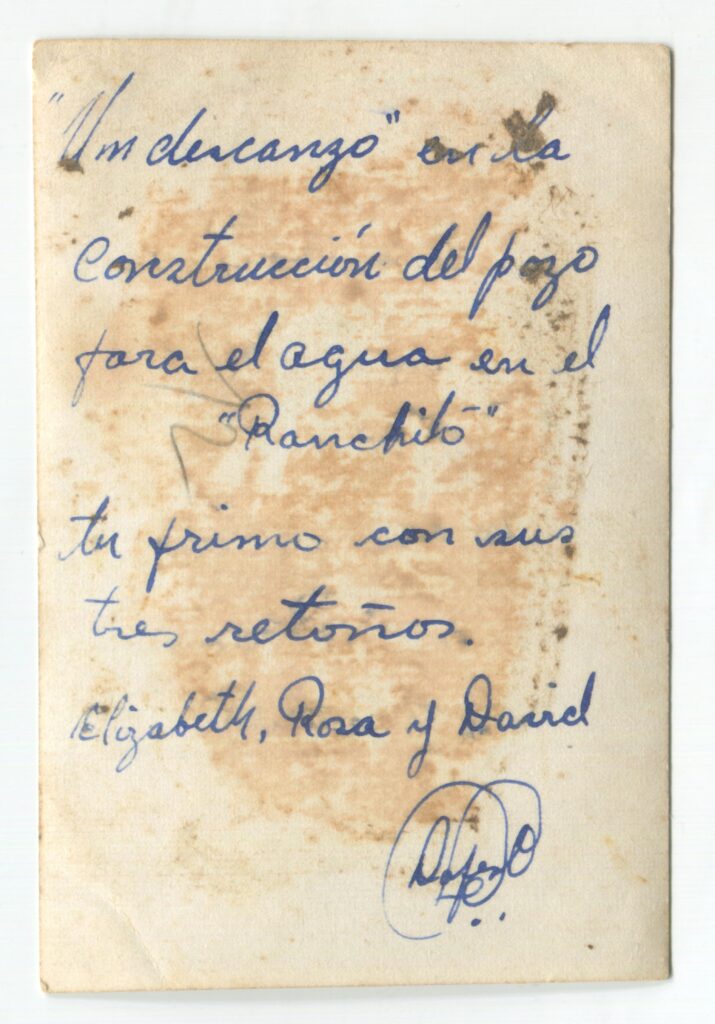 "Un descanzo" en la
construcción del pozo
para el agua en el
"Ranchito"
tu primo con sus
tres retoños.
Elizabeth, Rosa y David